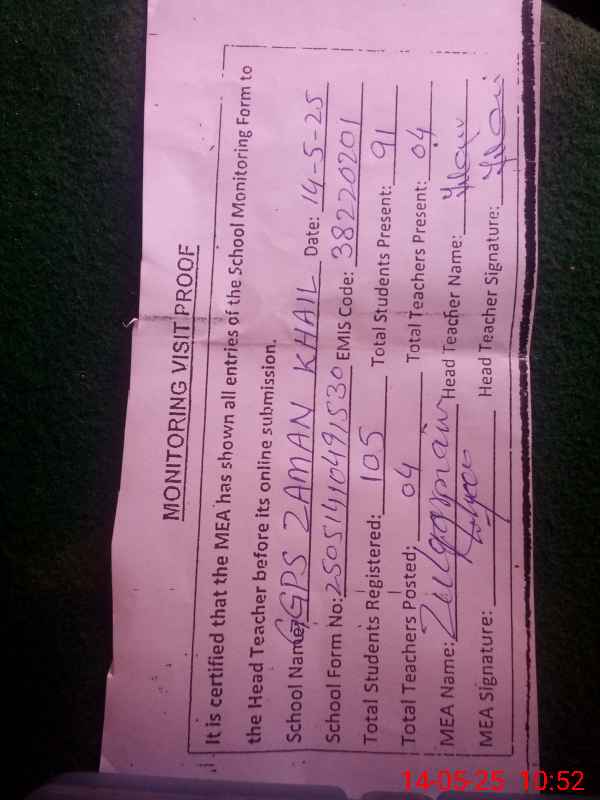 MONITORING VISIT PROOF
It is certified that the MEA has shown all entries of the School Monitoring Form to
the Head Teacher before its online submission.
School Name: GGPS ZAMAN KHAIL Date: 14-5-25
School Form No: 25051410491530 EMIS Code: 38220201
Total Students Registered: 105 Total Students Present: 91
Total Teachers Posted: 04 Total Teachers Present: 04
MEA Name: Zulqarnain Head Teacher Name:
MEA Signature: Head Teacher Signature:
14-05-25 10:52